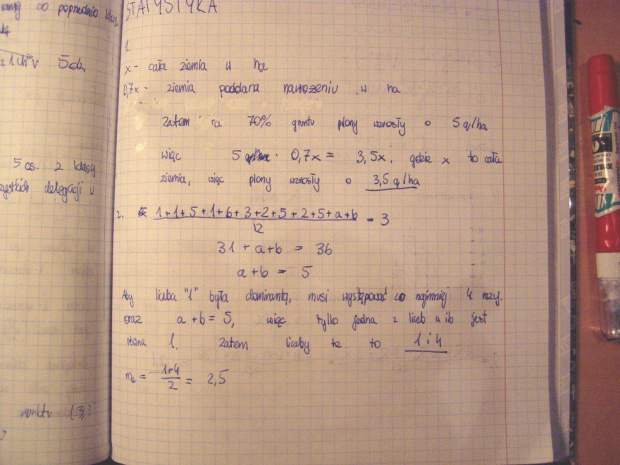 co poprzednio
5 os. 2 klasy
delegacji w
STATYSTYKA
1.
x - cała ziemia w ha
0,7x - ziemia poddana nawożeniu w ha
Zatem na 70% gruntu plony wzrosły o 5 q/ha
więc 5 · 0,7x = 3,5x, gdzie x to cała
ziemia, więc plony wzrosły o 3,5 q/ha
2. 1+1+5+1+6+3+2+5+2+5+a+b = 3
12
31 + a+b = 36
a+b = 5
Aby liczba "1" była dominantą, musi występować co najmniej 4 razy.
oraz a+b=5, więc tylko jedna z liczb a i b jest
równa 1. Zatem liczby te to 1 i 4
= 1+4
2
= 2,5